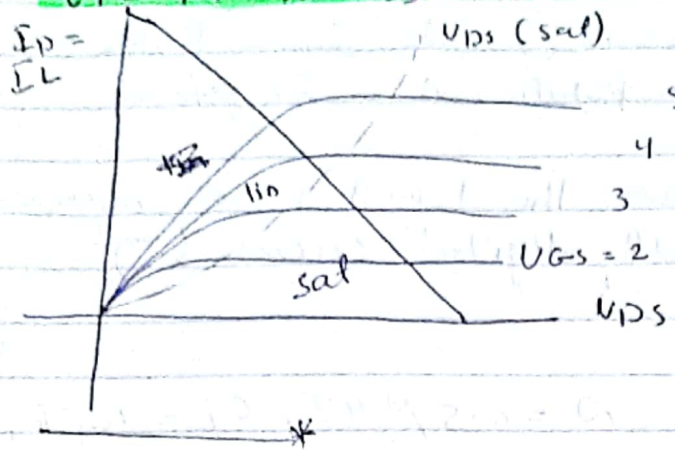 ID =
IL
VDS (sat)
4
lin
3
VGS = 2
sat
VDS